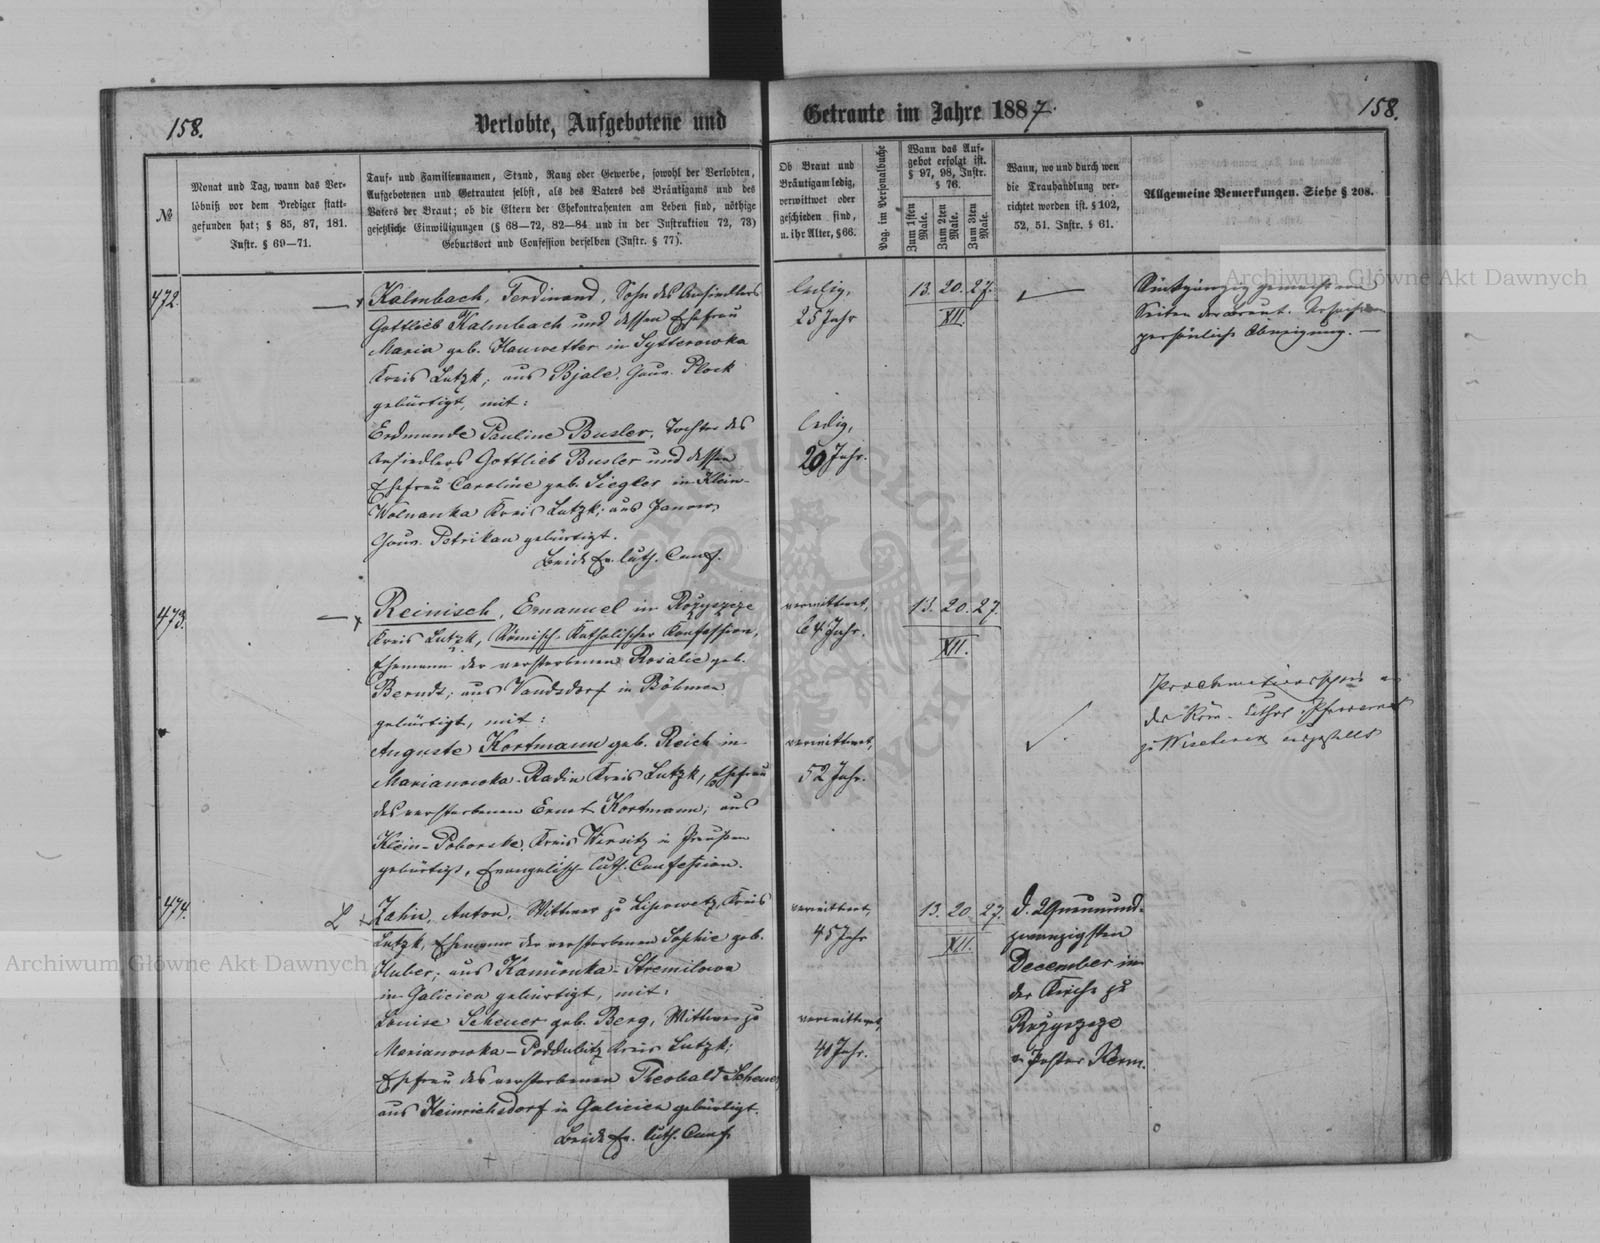 158.
Verlobte, Aufgebotene und
Getraute im Jahre 1887.
158.
№
Monat und Tag, wann das Ver-
löbniß vor dem Prediger statt-
gefunden hat; § 85, 87, 181.
Instr. § 69—71.
Tauf- und Familiennamen, Stand, Rang oder Gewerbe, sowohl der Verlobten,
Aufgebotenen und Getrauten selbst, als des Vaters des Bräutigams und des
Vaters der Braut; ob die Eltern der Ehekontrahenten am Leben sind, nöthige
gesetzliche Einwilligungen (§ 68—72, 82—84 und in der Instruktion 72, 73)
Geburtsort und Confession derselben (Instr. § 77).
Ob Braut und
Bräutigam ledig,
verwittwet oder
geschieden sind,
u. ihr Alter, § 66.
Pag. im Personalbuche
Wann das Auf-
gebot erfolgt ist.
§ 97, 98, Instr.
§ 76.
Zum 1sten Male.
Zum 2ten Male.
Zum 3ten Male.
Wann, wo und durch wen
die Trauhandlung ver-
richtet worden ist. § 102,
52, 51. Instr. § 61.
Allgemeine Bemerkungen. Siehe § 208.
472.
Kalmbach, Ferdinand, Sohn des Ansiedlers
Gottlieb Kalmbach und dessen Ehefrau
Maria geb. Hauwetter in Sytterowka
Kreis Lutzk; aus Bjale, Gouv. Plock
gebürtigt, mit:
Erdmunde Pauline Busler, Tochter des
Ansiedlers Gottlieb Busler und dessen
Ehefrau Caroline geb. Siegler in Klein-
Wolnanka Kreis Lutzk; aus Janow
Gouv. Petrikau gebürtigt.
Beide Ev. luth. Conf.
ledig,
25 Jahr
ledig,
20 Jahr.
13. 20. 27.
XII.
Rückgängig gemacht von
Seiten der Braut. Ursache
persönliche Abneigung. —
473.
Reinisch, Emanuel in Rożyszcze
Kreis Lutzk, Römisch-Katholischer Konfession,
Ehemann der verstorbenen Rosalie geb.
Berndt; aus Vandsdorf in Böhmen
gebürtigt, mit:
Auguste Kortmann geb. Reich in
Marianowka-Radin Kreis Lutzk, Ehefrau
des verstorbenen Ernst Kortmann; aus
Klein-Poborske, Kreis Wirsitz in Preußen
gebürtigt, Evangelisch-luth. Confession.
verwittwet,
64 Jahr.
verwittwet,
52 Jahr.
13. 20. 27.
XII.
Proclamationsschein an
das Röm.-Kathol. Pfarramt
zu ausgestellt
474.
Zahn, Anton, Wittwer zu Kreis
Lutzk, Ehemann der verstorbenen Sophie geb.
Huber; aus Kamionka-Stremilowa
in Galicien gebürtigt, mit:
Louise Scheuer geb. Berg, Wittwe zu
Marianowka-Poddubitz Kreis Lutzk;
Ehefrau des verstorbenen Theobald Scheuer,
aus Heinrichsdorf in Galicien gebürtigt.
Beide Ev. luth. Conf.
verwittwet,
45 Jahr
verwittwet,
40 Jahr.
13. 20. 27.
XII.
D. 29 neunund-
zwanzigsten
December in
der Kirche zu
Rożyszcze
v. Pastor Kerm.
Archiwum Główne Akt Dawnych
Archiwum Główne Akt Dawnych
ARCHIWUM GŁÓWNE AKT DAWNYCH